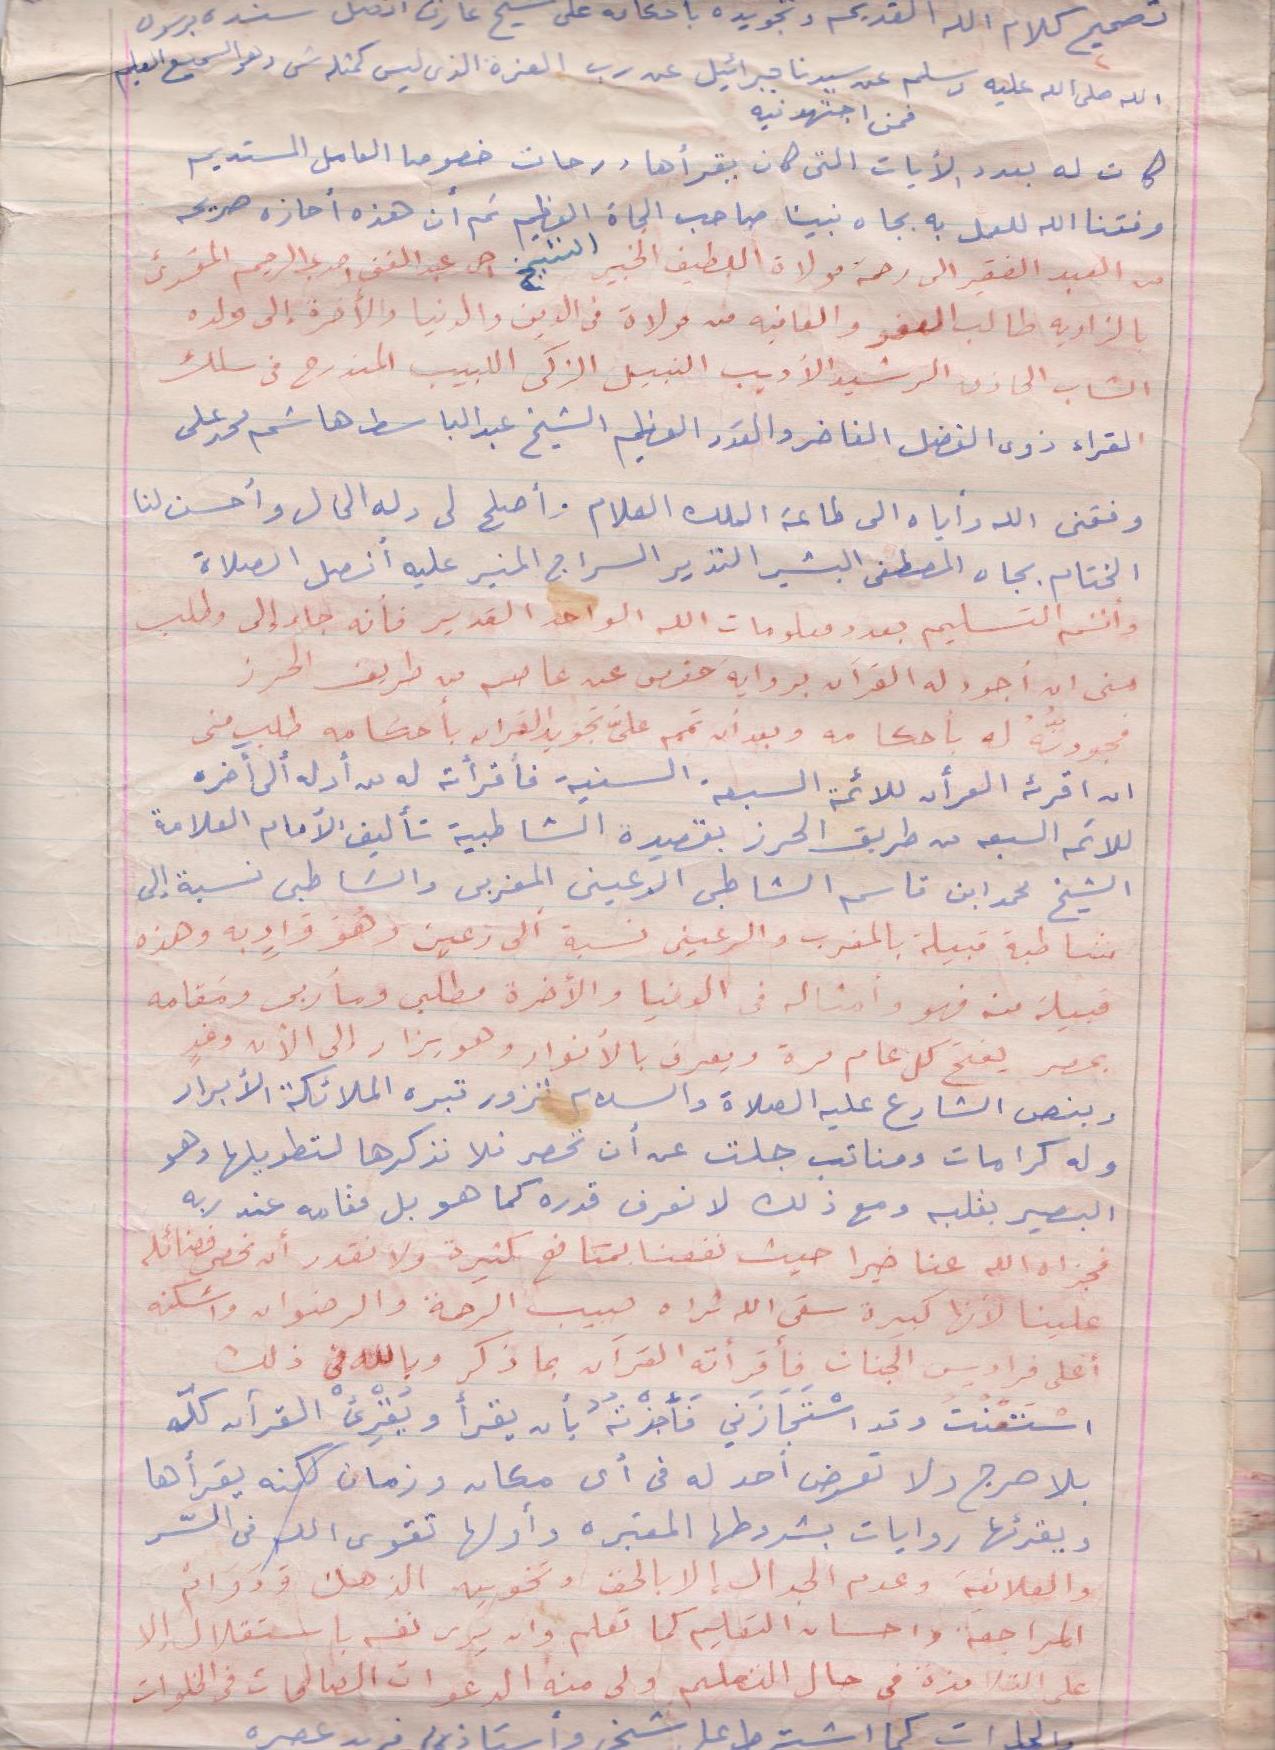 تصحيح كلام الله القديم وتجويده بأحكامه على شيخ عارف اتصل سنده برسول
الله صلى الله عليه وسلم عن سيدنا جبرائيل عن رب العزة الذى ليس كمثله شئ وهو السميع العليم
فمن اجتهد فيه
كانت له بعدد الأيات التى كان يقرأها درجات خصوصا العامل المستديم
وفقنا الله للعمل به بجاه نبينا صاحب الجاة العظيم ثم أن هذه أجازه صريحه
من العبد الفقير الى رحمة مولاة اللطيف الخبير الشيخ عبد الرحيم المقرئ
بالزاويه طالب العفو والعافيه من مولاة فى الدين والدنيا والأخرة إلى ولده
الشاب الحاذق الرشيد الأديب النبيل الزكى اللبيب المندرج فى سلك
القراء ذوى الفضل الفاخر والقدر العظيم الشيخ عبد الباسط هاشم محمد على
وفقنى الله وأياه الى طاعة الملك العلام وأصلح لى وله الحال وأحسن لنا
الختام بجاه المصطفى البشير النذير السراج المنير عليه أفضل الصلاة
وأتم التسليم بعدد معلومات الله الواحد القدير فأنه جاء إلى وطلب
منى ان أجود له القرآن برواية حفص عن عاصم من طريق الحرز
فجودتُّهُ له بأحكامه وبعد أن تمم علىَّ تجويد القران بأحكامه طلب منى
ان اقرئه القرأن للائمة السبعة السنية فأقرأته له من أوله ألى أخره
للائمه السبعه من طريق الحرز بقصيدة الشاطبية تأليف الأمام العلامة
الشيخ محمد ابن قاسم الشاطبى الرعينى المغربى والشاطبى نسبة إلى
شاطبة قبيلة بالمغرب والرعينى نسبة ألى رعين وهو وادٍ به وهذه
قبيلة منه فهو وأمثاله فى الدنيا والأخرة مطلبى ومأربى ومقامه
بمصر يفتح كل عام مرة ويعرف بالأنوار وهو يزار إلى الأن وغدٍ
وبنص الشارع عليه الصلاة والسلام تزور قبره الملائكة الأبرار
وله كرامات ومناقب جلت عن أن تحصر فلا نذكرها لتطويلها وهو
البصير بقلبه ومع ذلك لا نعرف قدره كما هو بل مقامه عند ربه
فجزاه الله عنا خيرا حيث نفعنا بمنافع كثيرة ولا نقدر أن نحصى فضائله
علينا لأنها كبيرة سقى الله ثراه صبيب الرحمة والرضوان وأسكنه
أعلى فراديس الجنان فأقرأته القرآن بما ذكر وبالله فى ذلك
استعنت وقد اسْتَجَازَني فَأَجَزْتُهُ بأن يقرأ ويُقْرِئَ القرأن كلّه
بلا حرج ولا تعرض أحد له فى أى مكان وزمان لكنه يقرأها
ويقرئها روايات بشروطها المعتبره وأولها تقوى الله فى السّر
والعلانية وعدم الجدال إلا بالحق وتخويف الذهن ودوام
المراجعة واحسان التعليم كما تعلم وان يرى نفسه باستقلال إلا
على التلامذة فى حال التعليم ولى منه الدعوات الصالحات فى الخلوات
والجلوات كما اشترط على شيخى وأستاذى فريد عصره